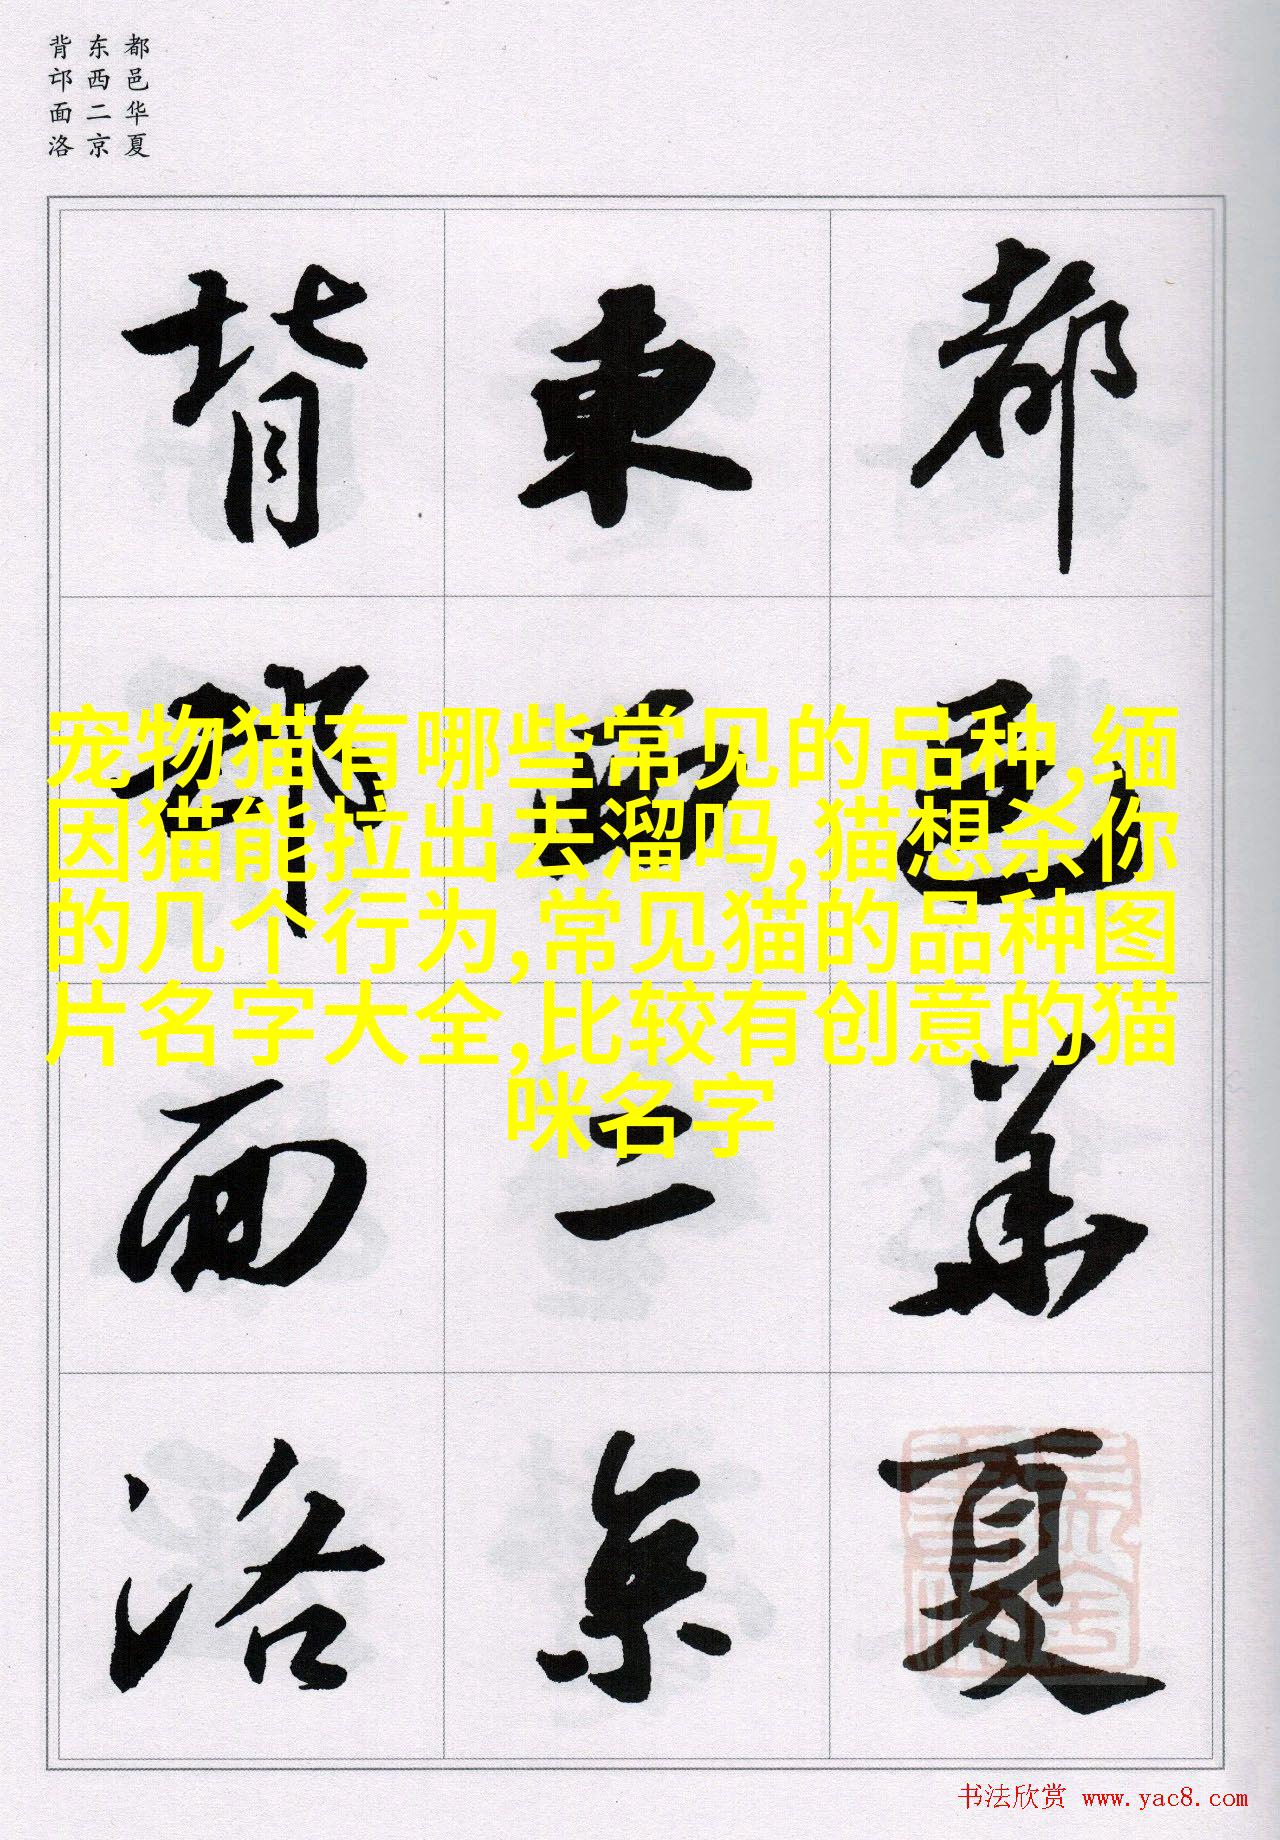 都邑华夏
东西二京
背邙面洛
都邑華夏
東西二京
背邙面洛
宠物猫有哪些常见的品种,缅
因猫能拉出去溜吗,猫想杀你
的几个行为,常见猫的品种图
片名字大全,比较有创意的猫
咪名字
书法欣赏 www.yac8.com